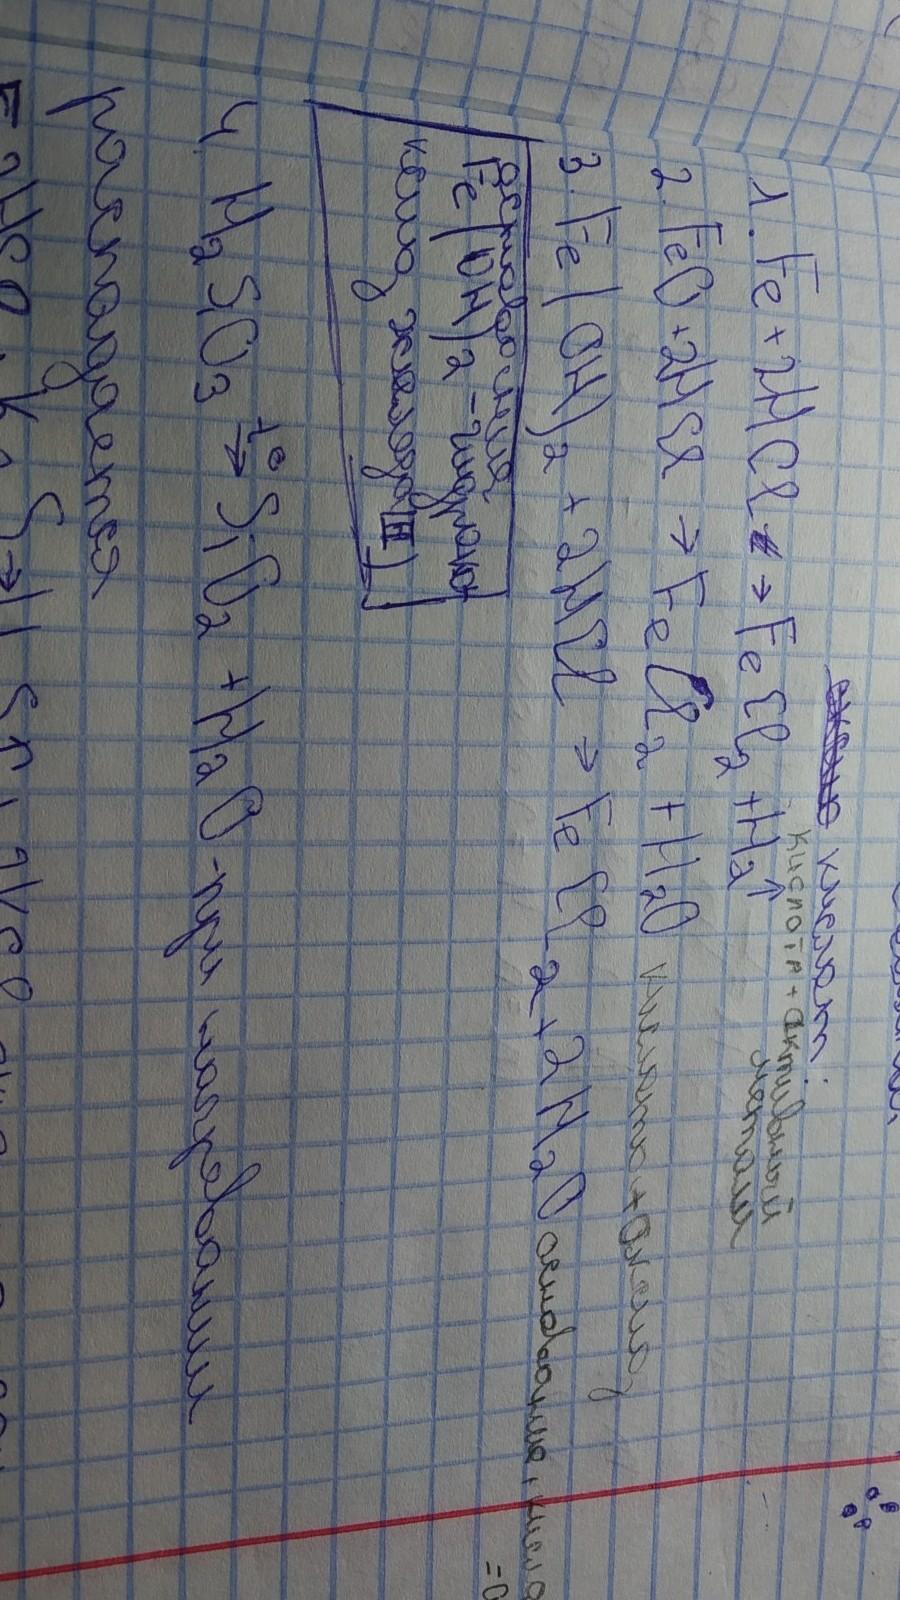 кислот:
кислота + активный
металл
1. Fe + 2HCl → FeCl2 + H2↑
2. FeO + 2HCl → FeCl2 + H2O кислота + оксид
3. Fe(OH)2 + 2HCl → FeCl2 + 2H2O основание + кисло
= 
основание
Fe(OH)2 - гидрок
сид железа (II)
4. H2SiO3 t° → SiO2 + H2O - при нагревании
распадается